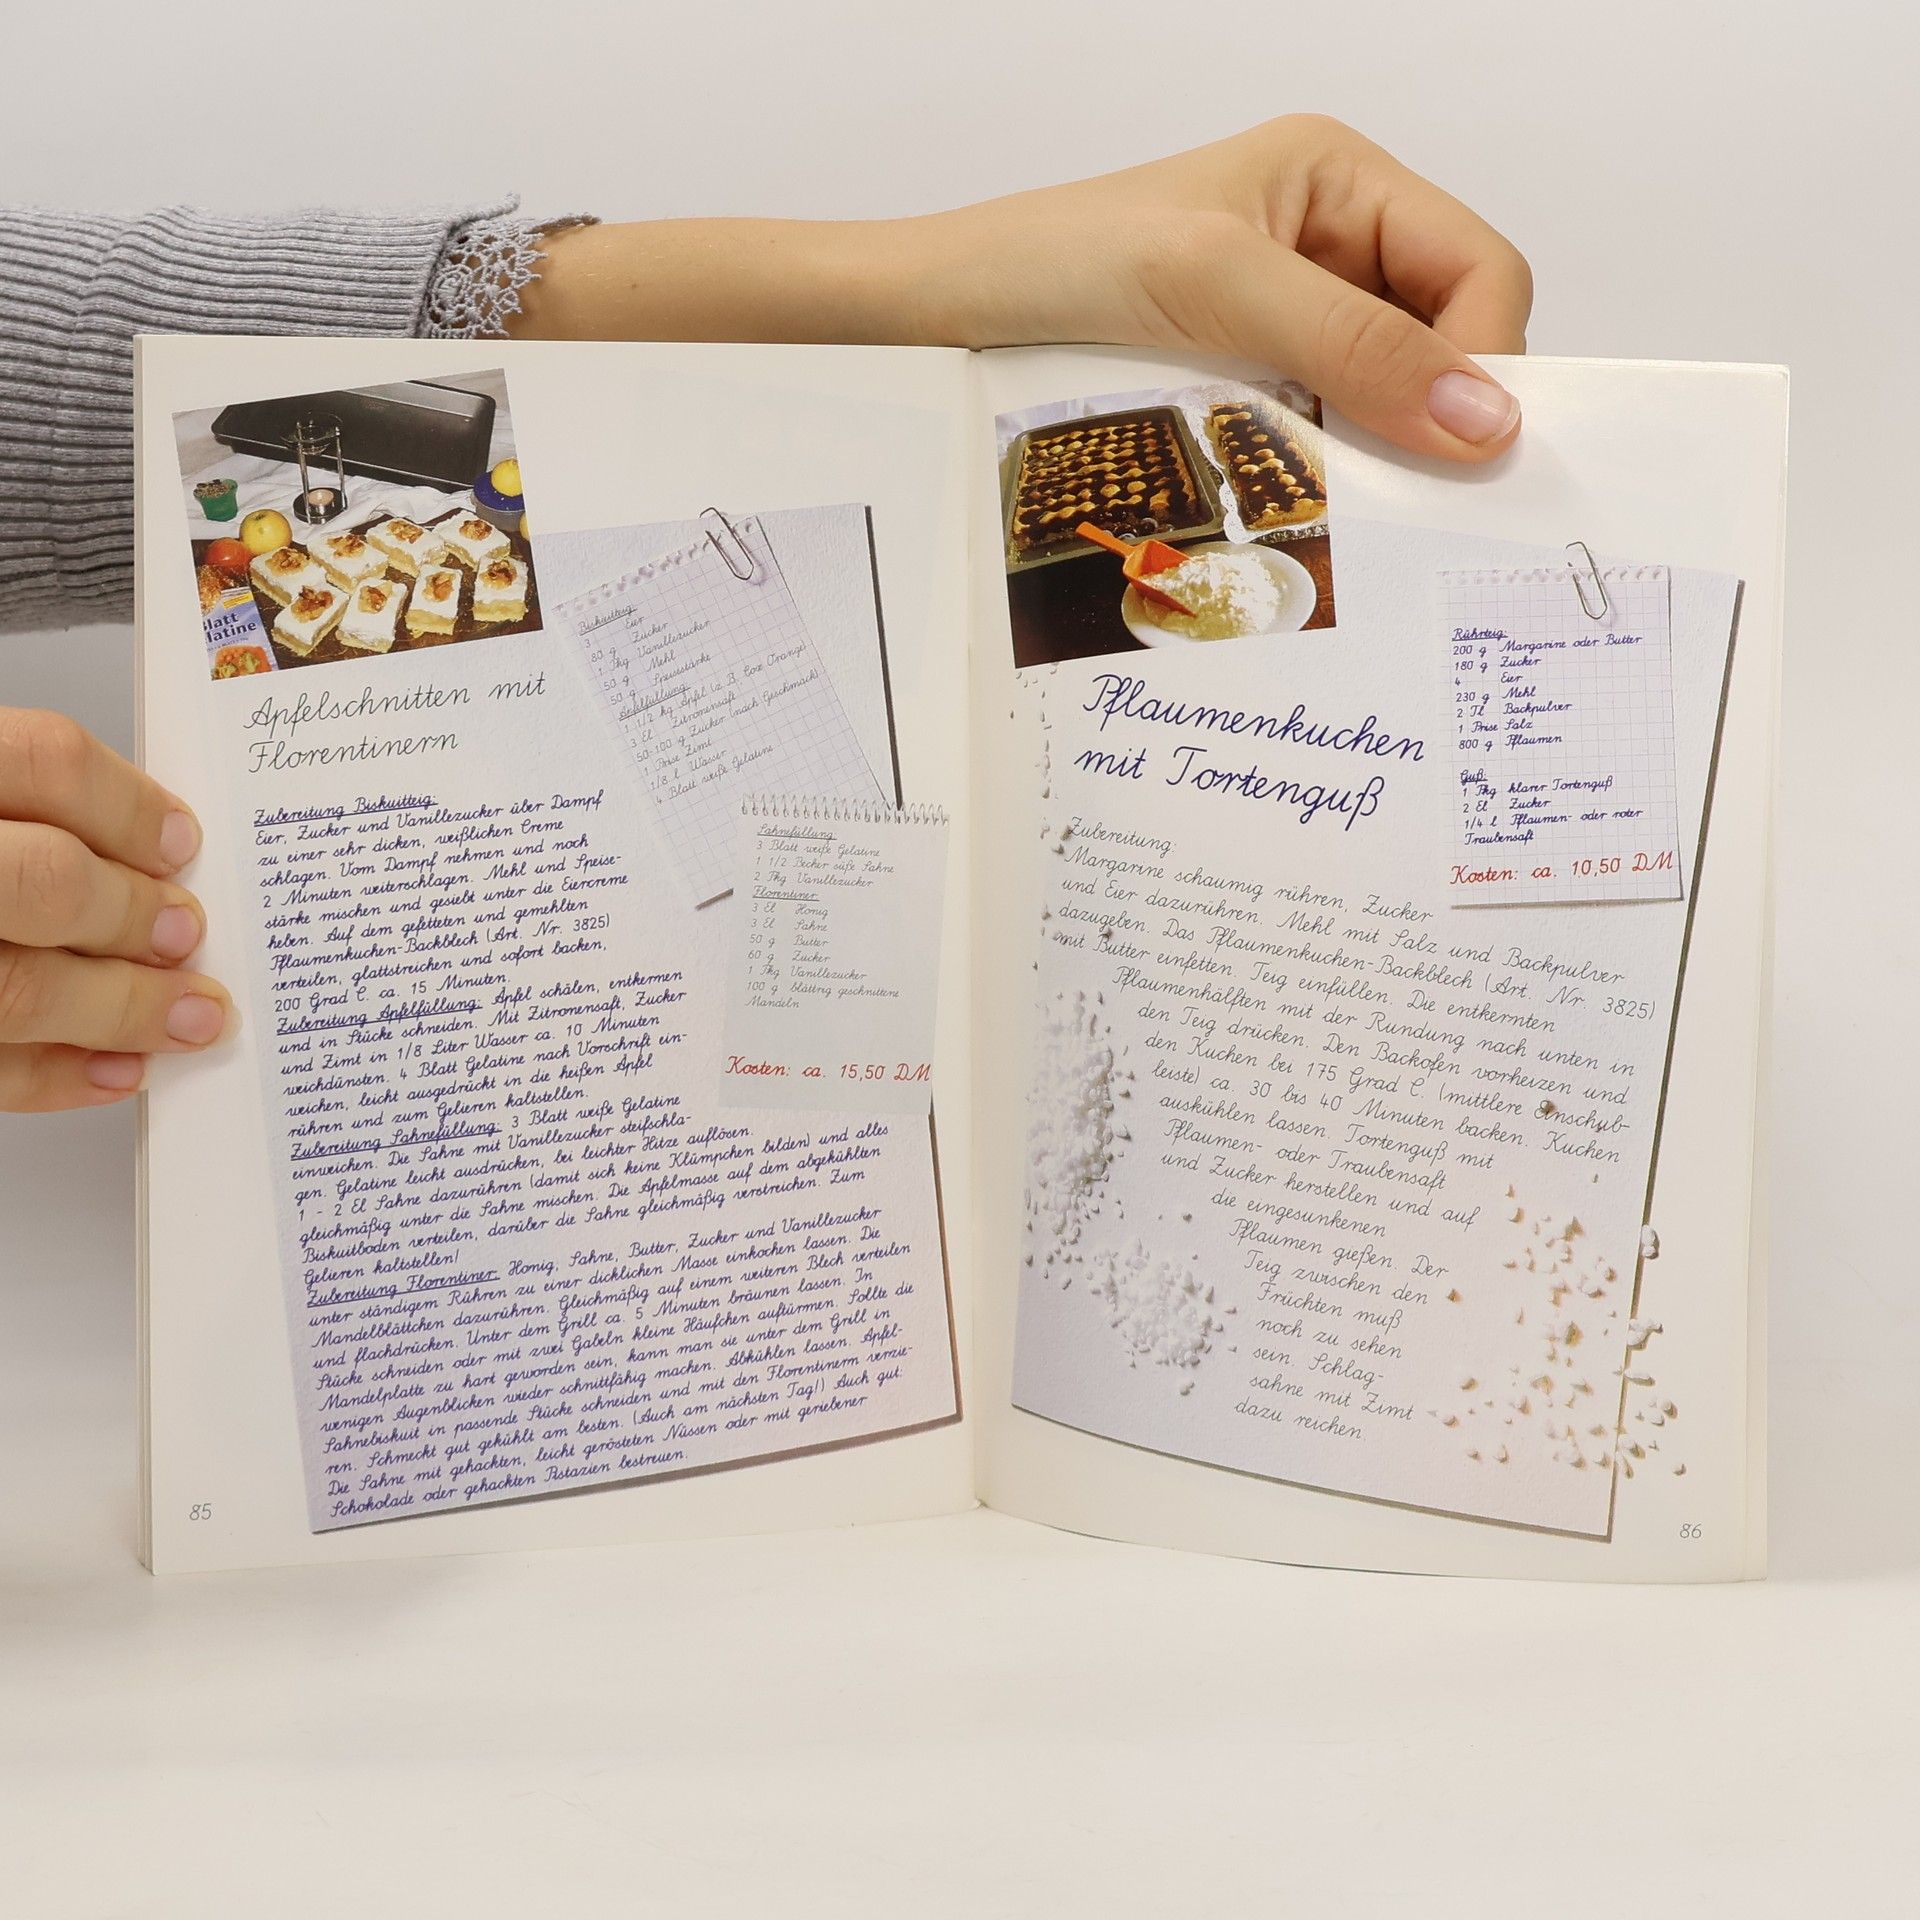 Blatt
latine
Apfelschnitten mit
Florentinern
Biskuitteig:
3 Eier
80 g Zucker
1 Pkg Vanillezucker
50 g Mehl
50 g Speisestärke
Apfelfüllung:
1 1/2 kg Äpfel (z. B. Cox Orange)
3 El Zitronensaft
50-100 g Zucker (nach Geschmack)
1 Prise Zimt
1/8 l Wasser
4 Blatt weiße Gelatine
Sahnefüllung:
3 Blatt weiße Gelatine
1 1/2 Becher süße Sahne
2 Pkg Vanillezucker
Florentiner:
3 El Honig
3 El Sahne
50 g Butter
60 g Zucker
1 Pkg Vanillezucker
100 g blättrig geschnittene
Mandeln
Kosten: ca. 15,50 DM
Zubereitung Biskuitteig:
Eier, Zucker und Vanillezucker über Dampf
zu einer sehr dicken, weißlichen Creme
schlagen. Vom Dampf nehmen und noch
2 Minuten weiterschlagen. Mehl und Speise-
stärke mischen und gesiebt unter die Eiercreme
heben. Auf dem gefetteten und gemehlten
Pflaumenkuchen-Backblech (Art. Nr. 3825)
verteilen, glattstreichen und sofort backen,
200 Grad C. ca. 15 Minuten.
Zubereitung Apfelfüllung: Äpfel schälen, entkernen
und in Stücke schneiden. Mit Zitronensaft, Zucker
und Zimt in 1/8 Liter Wasser ca. 10 Minuten
weichdünsten. 4 Blatt Gelatine nach Vorschrift ein-
weichen, leicht ausgedrückt in die heißen Äpfel
rühren und zum Gelieren kaltstellen.
Zubereitung Sahnefüllung: 3 Blatt weiße Gelatine
einweichen. Die Sahne mit Vanillezucker steifschla-
gen. Gelatine leicht ausdrücken, bei leichter Hitze auflösen.
1 - 2 El Sahne dazurühren (damit sich keine Klümpchen bilden) und alles
gleichmäßig unter die Sahne mischen. Die Apfelmasse auf dem abgekühlten
Biskuitboden verteilen, darüber die Sahne gleichmäßig verstreichen. Zum
Gelieren kaltstellen!
Zubereitung Florentiner: Honig, Sahne, Butter, Zucker und Vanillezucker
unter ständigem Rühren zu einer dicklichen Masse einkochen lassen. Die
Mandelblättchen dazurühren. Gleichmäßig auf einem weiteren Blech verteilen
und flachdrücken. Unter dem Grill ca. 5 Minuten bräunen lassen. In
Stücke schneiden oder mit zwei Gabeln kleine Häufchen auftürmen. Sollte die
Mandelplatte zu hart geworden sein, kann man sie unter dem Grill in
wenigen Augenblicken wieder schnittfähig machen. Abkühlen lassen. Apfel-
Sahnebiskuit in passende Stücke schneiden und mit den Florentinern verzie-
ren. Schmeckt gut gekühlt am besten. (Auch am nächsten Tag!) Auch gut:
Die Sahne mit gehackten, leicht gerösteten Nüssen oder mit geriebener
Schokolade oder gehackten Pistazien bestreuen.
85
Pflaumenkuchen
mit Tortenguß
Rührteig:
200 g Margarine oder Butter
180 g Zucker
4 Eier
230 g Mehl
2 Tl Backpulver
1 Prise Salz
800 g Pflaumen
Guß:
1 Pkg klarer Tortenguß
2 El Zucker
1/4 l Pflaumen- oder roter
Traubensaft
Kosten: ca. 10,50 DM
Zubereitung:
Margarine schaumig rühren, Zucker
und Eier dazurühren. Mehl mit Salz und Backpulver
dazugeben. Das Pflaumenkuchen-Backblech (Art. Nr. 3825)
mit Butter einfetten. Teig einfüllen. Die entkernten
Pflaumenhälften mit der Rundung nach unten in
den Teig drücken. Den Backofen vorheizen und
den Kuchen bei 175 Grad C. (mittlere Einschub-
leiste) ca. 30 bis 40 Minuten backen. Kuchen
auskühlen lassen. Tortenguß mit
Pflaumen- oder Traubensaft
und Zucker herstellen und auf
die eingesunkenen
Pflaumen gießen. Der
Teig zwischen den
Früchten muß
noch zu sehen
sein. Schlag-
sahne mit Zimt
dazu reichen.
86